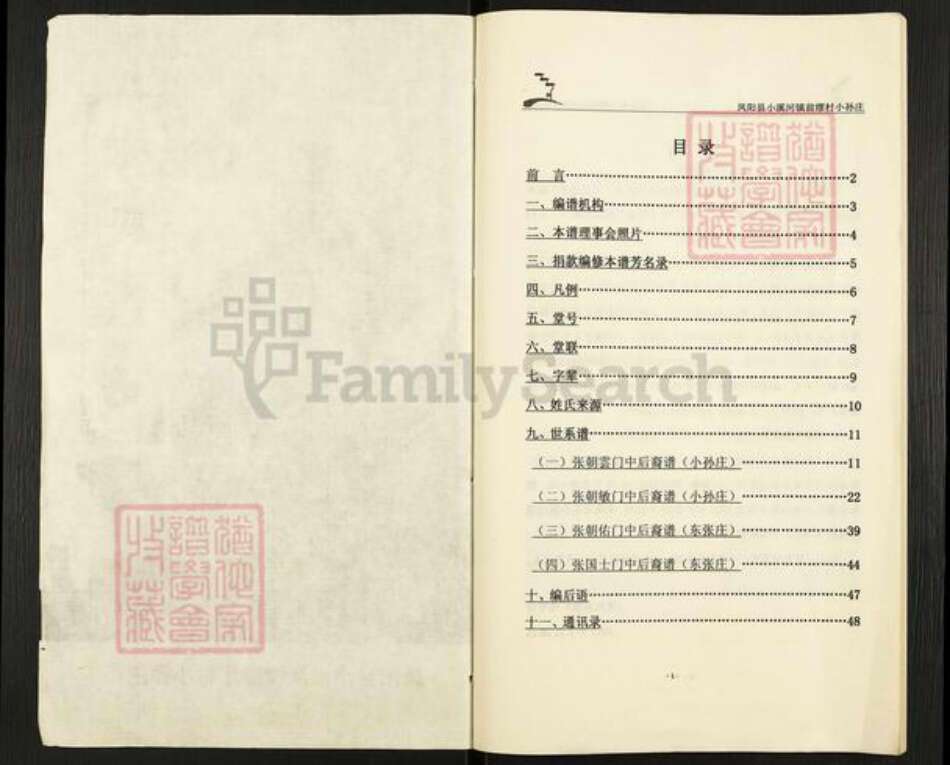 凤阳县小溪河镇前埋村小孙庄
目 录
前 言……2
一、编谱机构……3
二、本谱理事会照片……4
三、捐款编修本谱芳名录……5
四、凡例……6
五、堂号……7
六、堂联……8
七、字辈……9
八、姓氏来源……10
九、世系谱……11
（一）张朝雲门中后裔谱（小孙庄）……11
（二）张朝敏门中后裔谱（小孙庄）……22
（三）张朝佑门中后裔谱（东张庄）……39
（四）张国士门中后裔谱（东张庄）……44
十、编后语……47
十一、通讯录……48
-1-
FamilySearch